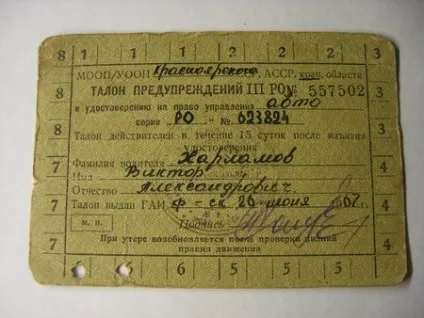 8 1 1 1 2 2 2 3
МООП/УООП Красноярского АССР, края, области
ТАЛОН ПРЕДУПРЕЖДЕНИЙ III РОМ 557502
к удостоверению на право управления авто
серии РО № 623824
Талон действителен в течение 15 суток после изъятия
удостоверения
Фамилия водителя Харламов
Имя Виктор
Отчество Александрович.
Талон выдан ГАИ 26 июня 1967 г.
М. П. Подпись
При утере возобновляется после проверки знаний
правил движения
8 3
7 4
7 4
6 6 6 5 5 5 4